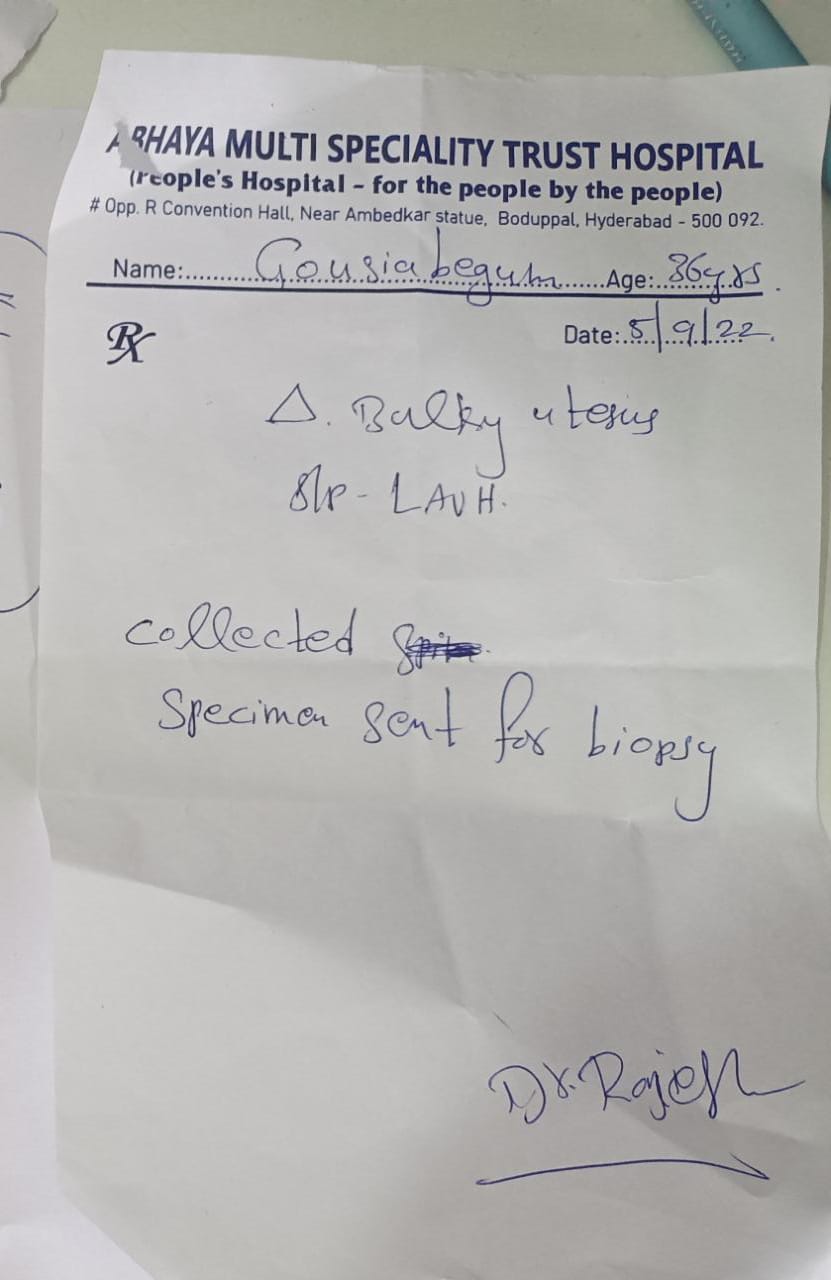 ABHAYA MULTI SPECIALITY TRUST HOSPITAL
(People's Hospital - for the people by the people)
# Opp. R Convention Hall, Near Ambedkar statue, Boduppal, Hyderabad - 500 092.
Name:..........Gousia begum......Age:..36yrs.
Rx
Date:.5/9/22.
Δ. Bulky uterus
S/P - LAVH.
collected
Specimen sent for biopsy
Dr. Rajesh